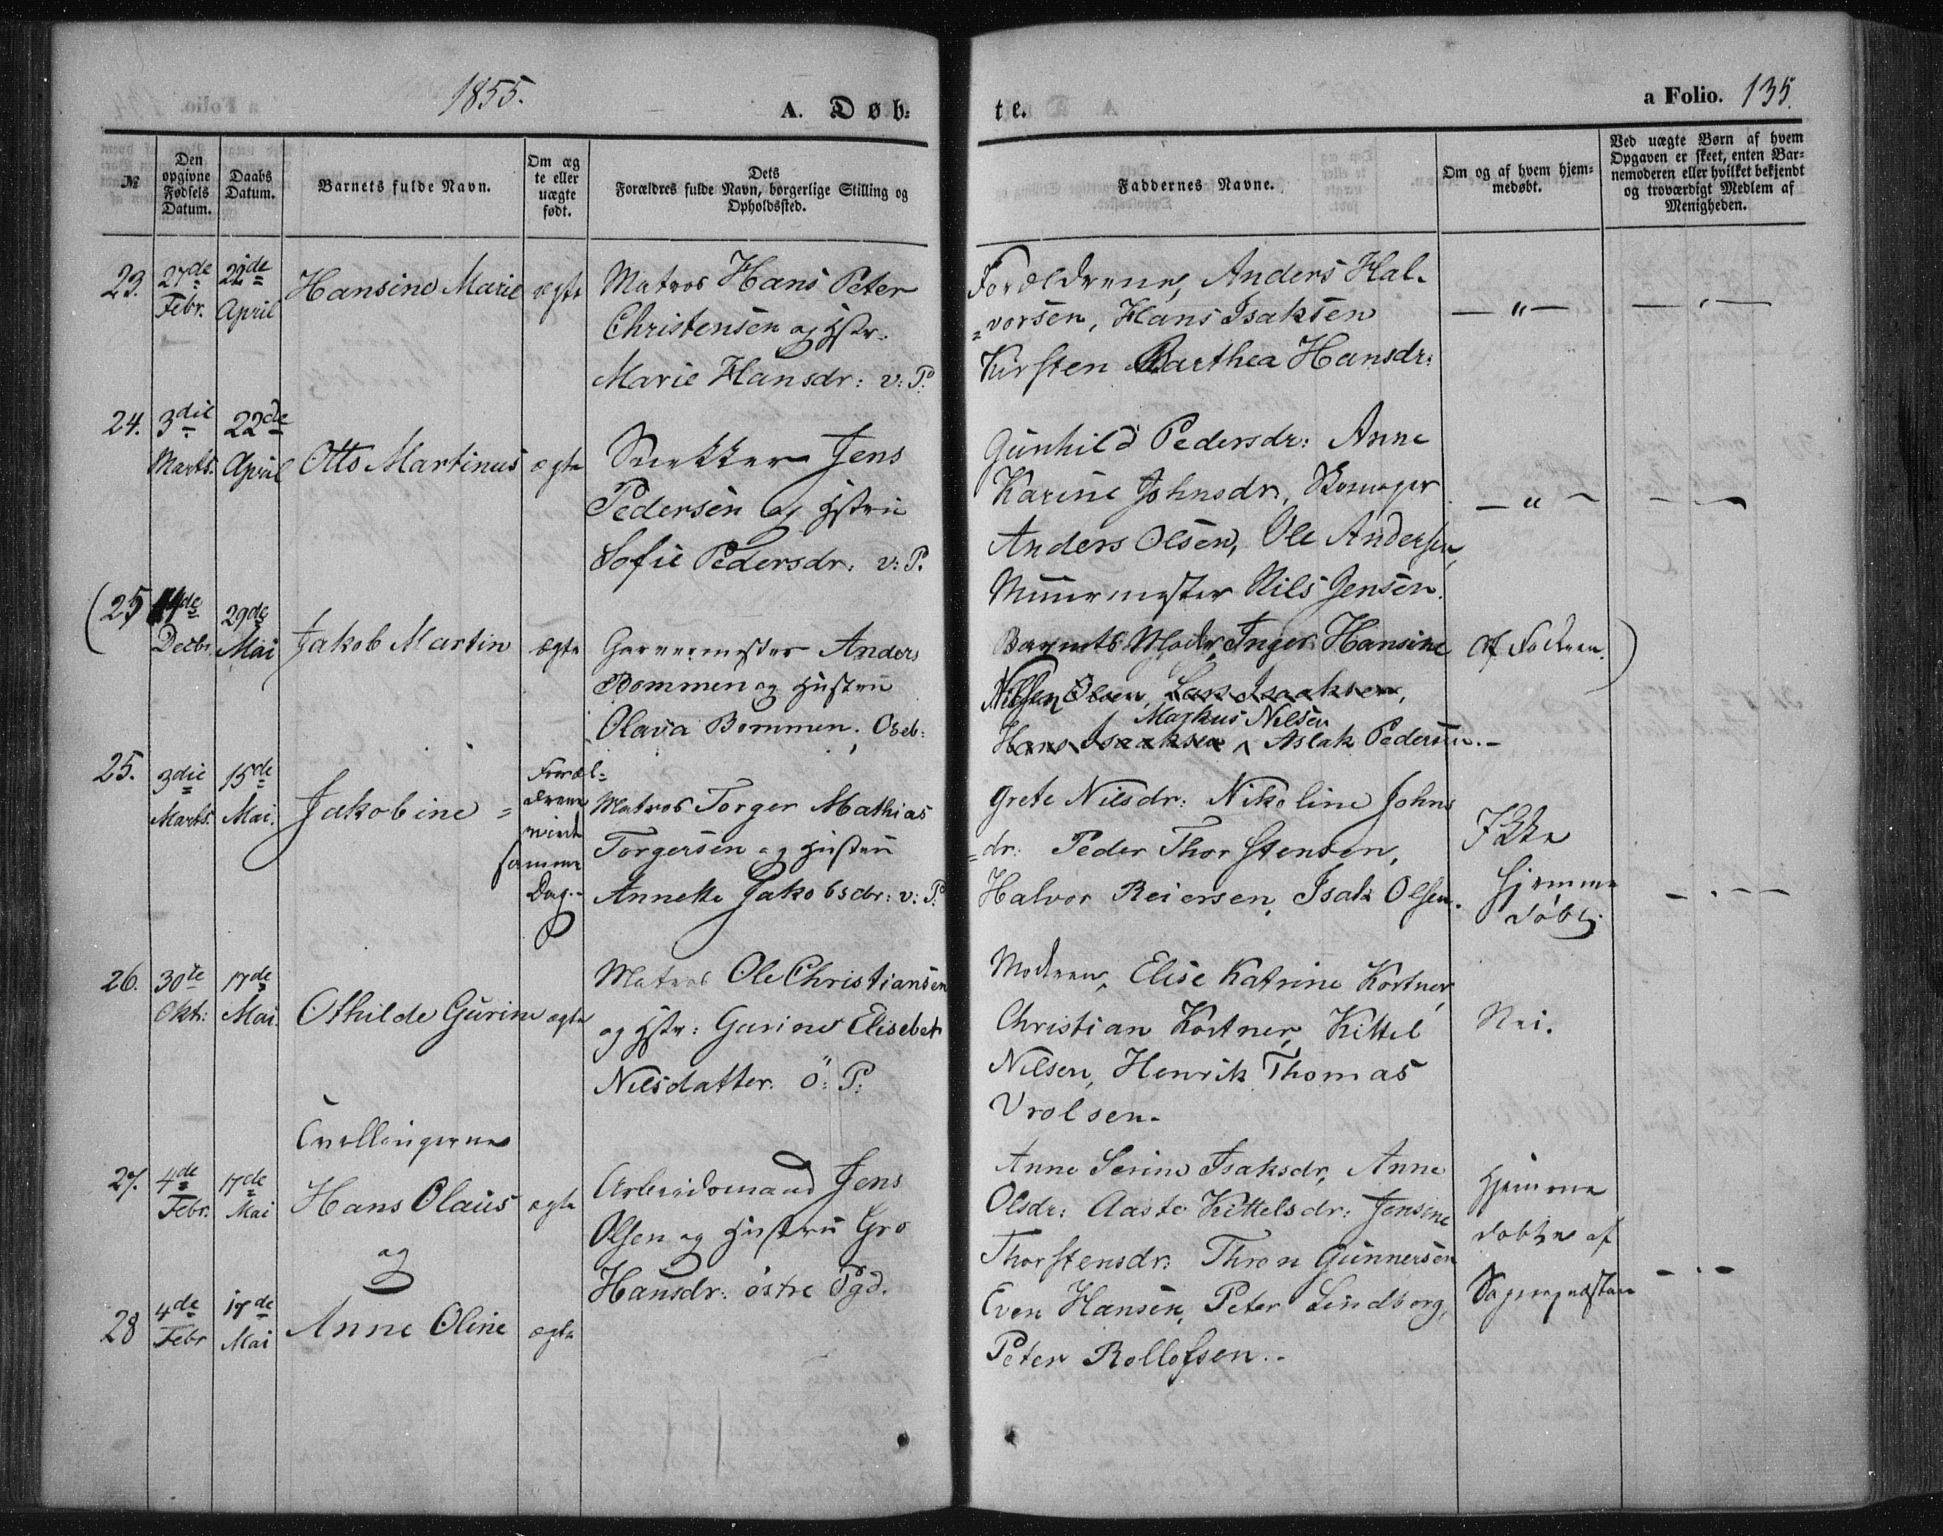 1855.
A. Døb-
te.
a Folio. 135.
№
Den opgivne Fødsels Datum.
Daabs Datum.
Barnets fulde Navn.
Om ægte eller uægte født.
Dets Forældres fulde Navn, borgerlige Stilling og Opholdssted.
Faddernes Navne.
Om og af hvem hjemmedøbt.
Ved uægte Børn af hvem Opgaven er skeet, enten Barnemoderen eller hvilket bekjendt og troværdigt Medlem af Menigheden.
23. 27de Febr. 22de April Hansine Marie ægte
Matros Hans Peter
Christensen og Hstr.
Marie Hansdr: v: P.
Forældrene, Anders Hal-
vorsen, Hans Isaksen
Kirsten Barthea Hansdr:
— " —
24. 3die Marts. 22de April Otto Martinus ægte
Jens
Pedersen og Hstru
Sofie Pedersdr. v: P.
Gunhild Pedersdr: Anne
Karine Johnsdr,
Anders Olsen, Ole Andersen,
Muurmester Nils Jensen.
— " —
(25 Decbr. 29de Mai Jakob Martin ægte
Garvermester Anders
Bommen og Hustru
Olava Bommen, Oseb:
Barnets Moder, Inger Hansine
Nilsen Olsen, Lars Isaaksen,
Markus Nilsen
Hans Isaaksen Aslak Pedersen.-
af Faderen.)
25. 3die Marts. 15de Mai. Jakobine
Foræl-
drene
viede
samme
Dag.
Matros Torger Mathias
Torgersen og Hustru
Annette Jakobsdr: v: P.
Grete Nilsdr: Nikoline Johns
dr: Peder Thorstensen,
Halvor Reiersen, Isak Olsen.
Ikke
hjemme
døbt.
26. 30te Oktr: 17de Mai. Othilde Gurine ægte
Matros Ole Christiansen
og Hstr: Gurine Elisebet
Nilsdatter. ö: P.
Moderen, Elise Katrine Kortner,
Christian Kortner, Kittel
Nilsen, Henrik Thomas
Vrolsen.
Nei.
Tvillingerne
27. 4de Febr. 17de Mai Hans Olaus ægte
og
28 4de Febr 17de Mai Anne Oline ægte
Arbeidsmand Jens
Olsen og Hustru Gro
Hansdr: östre Pgd.
Anne Serine Isaksdr, Anne
Olsdr: Aaste Kittelsdr: Jensine
Thorstensdr: Thron Gunnersen
Even Hansen, Peter Lindborg,
Peter Rollefsen.
Hjemme
døbte af
Sognepræsten